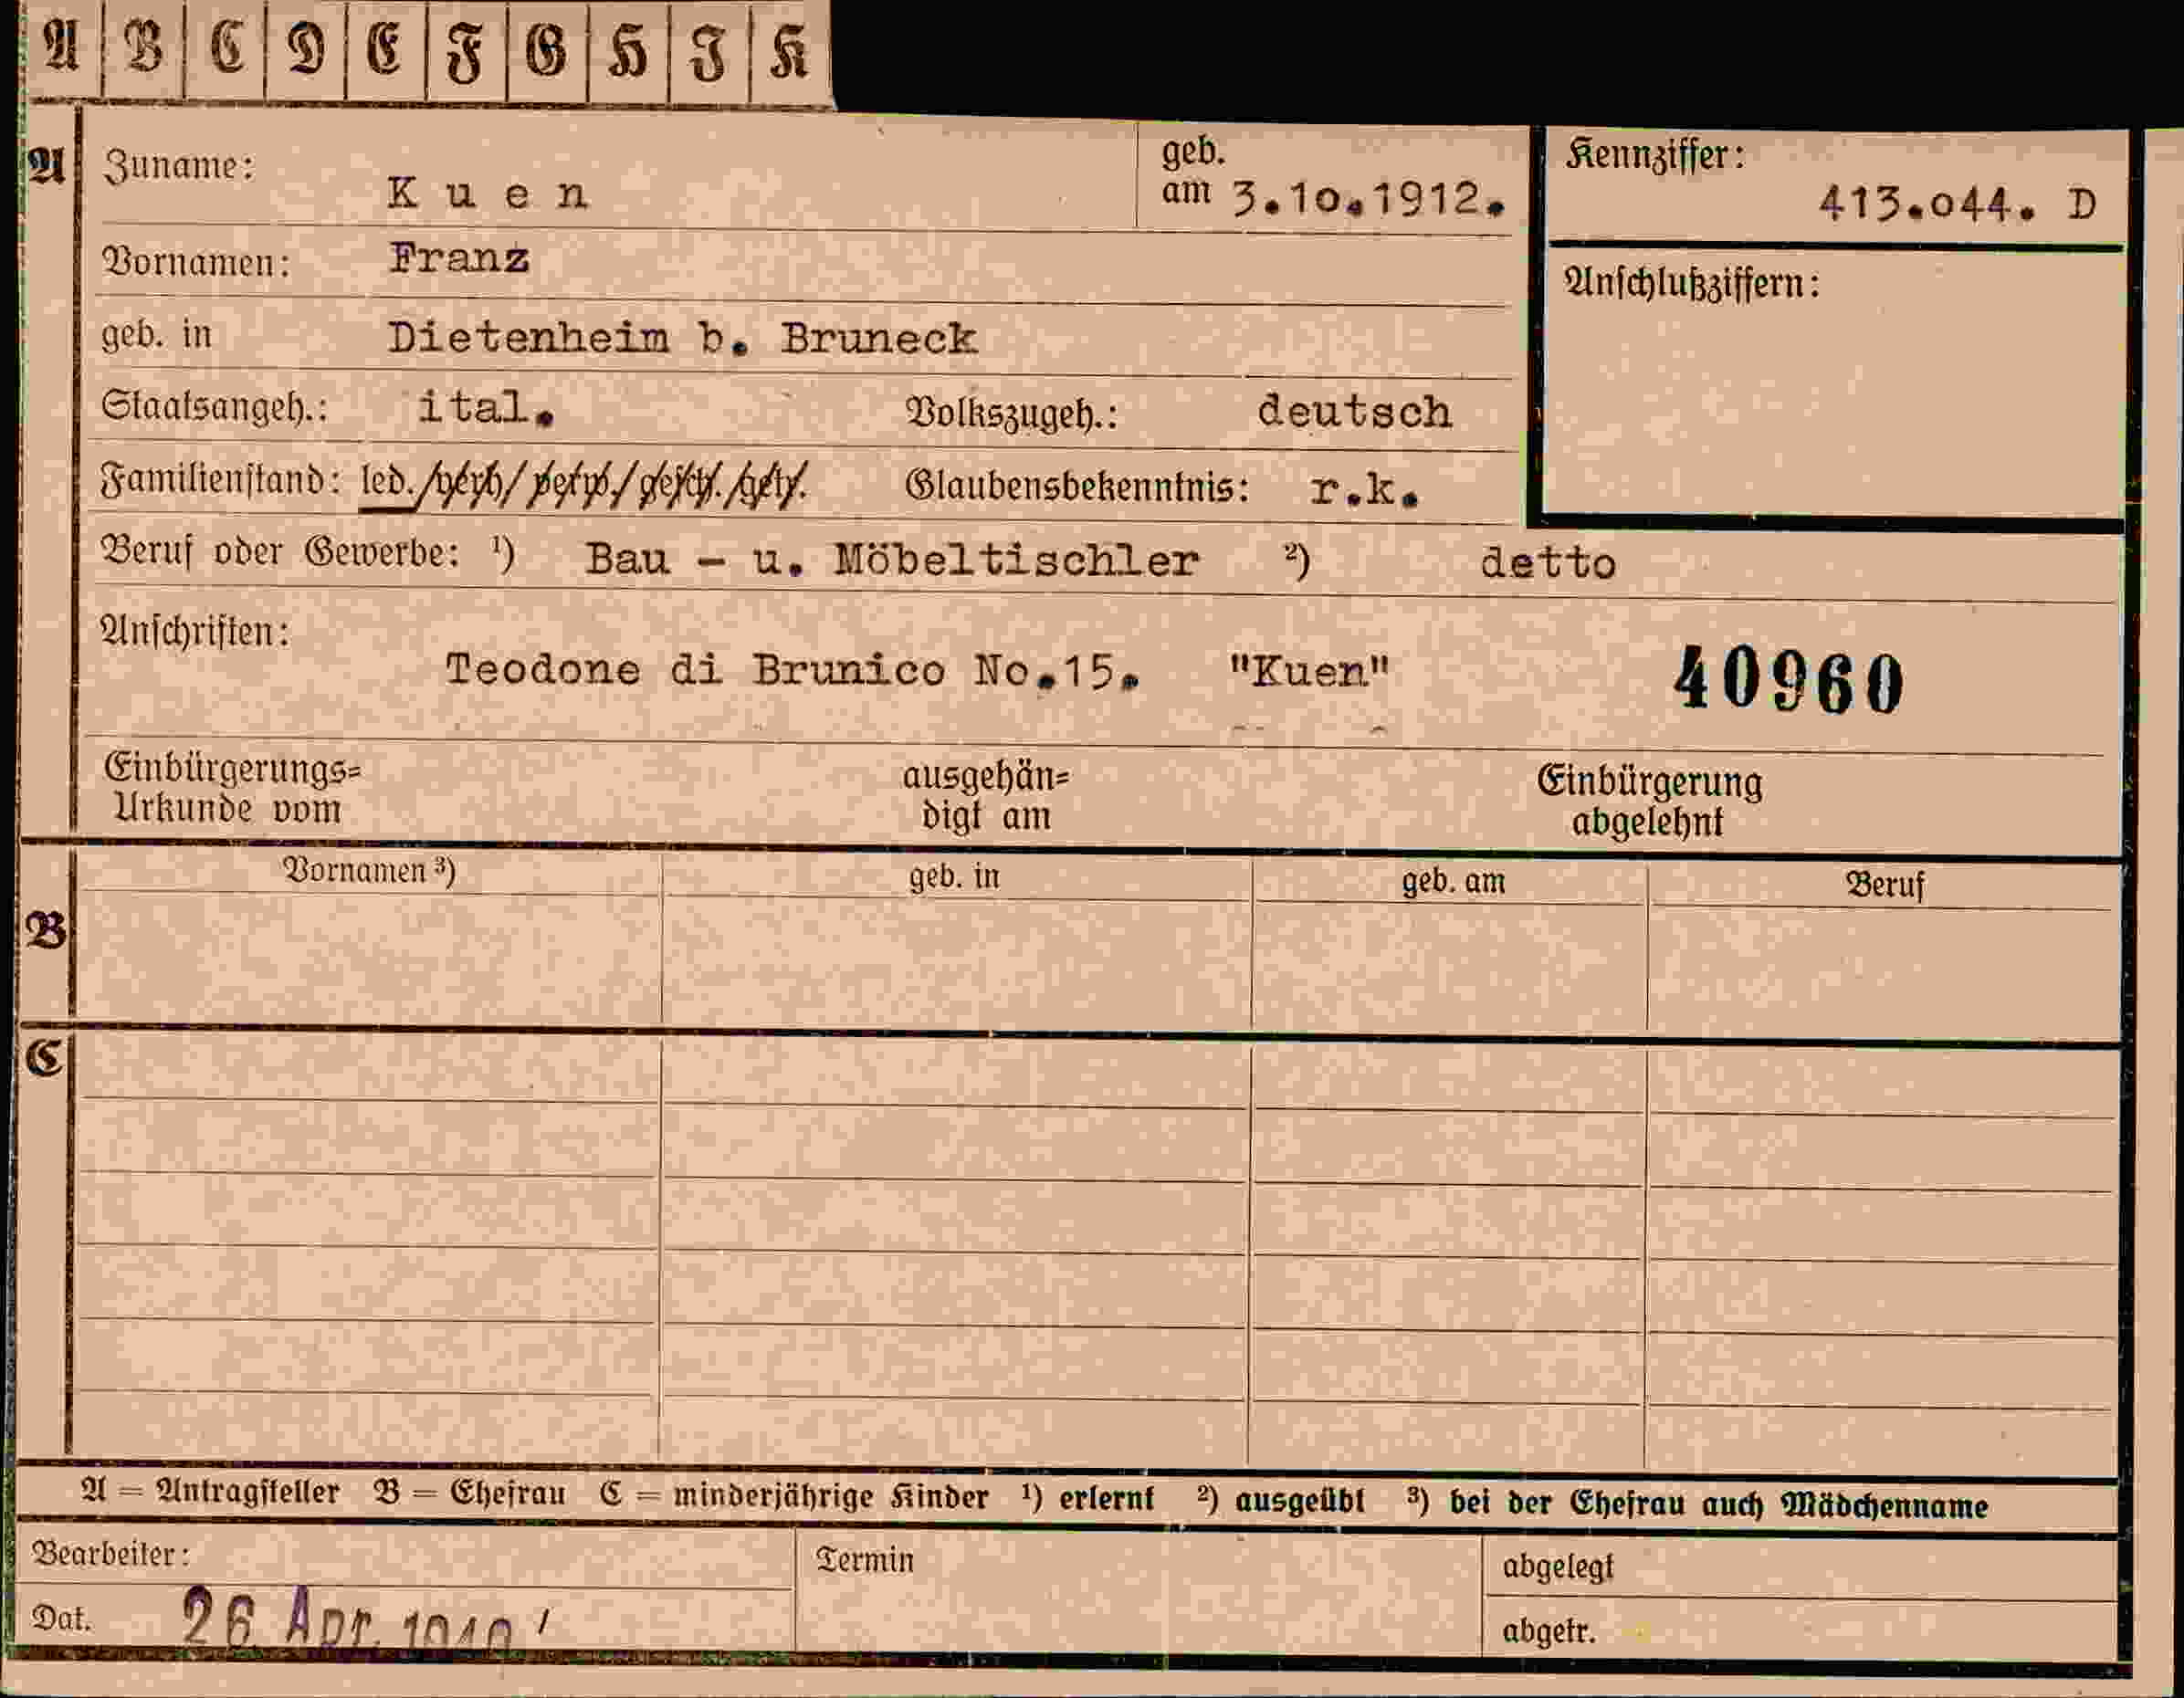 A B C D E F G H J K
A Zuname: K u e n geb. am 3.10.1912. Kennziffer: 413.044. D
Vornamen: Franz Anschlußziffern:
geb. in Dietenheim b. Bruneck
Staatsangeh.: ital. Volkszugeh.: deutsch
Familienstand: led./verh/verw./gesch./ Glaubensbekenntnis: r.k.
Beruf oder Gewerbe: ¹) Bau - u. Möbeltischler ²) detto
Anschriften:
Teodone di Brunico No.15. "Kuen" 40960
Einbürgerungs= ausgehän= Einbürgerung
Urkunde vom digt am abgelehnt
B Vornamen ³) geb. in geb. am Beruf
C
A = Antragsteller B = Ehefrau C = minderjährige Kinder ¹) erlernt ²) ausgeübt ³) bei der Ehefrau auch Mädchenname
Bearbeiter: Termin abgelegt
Dat. 26. Apr. 1940 abgetr.